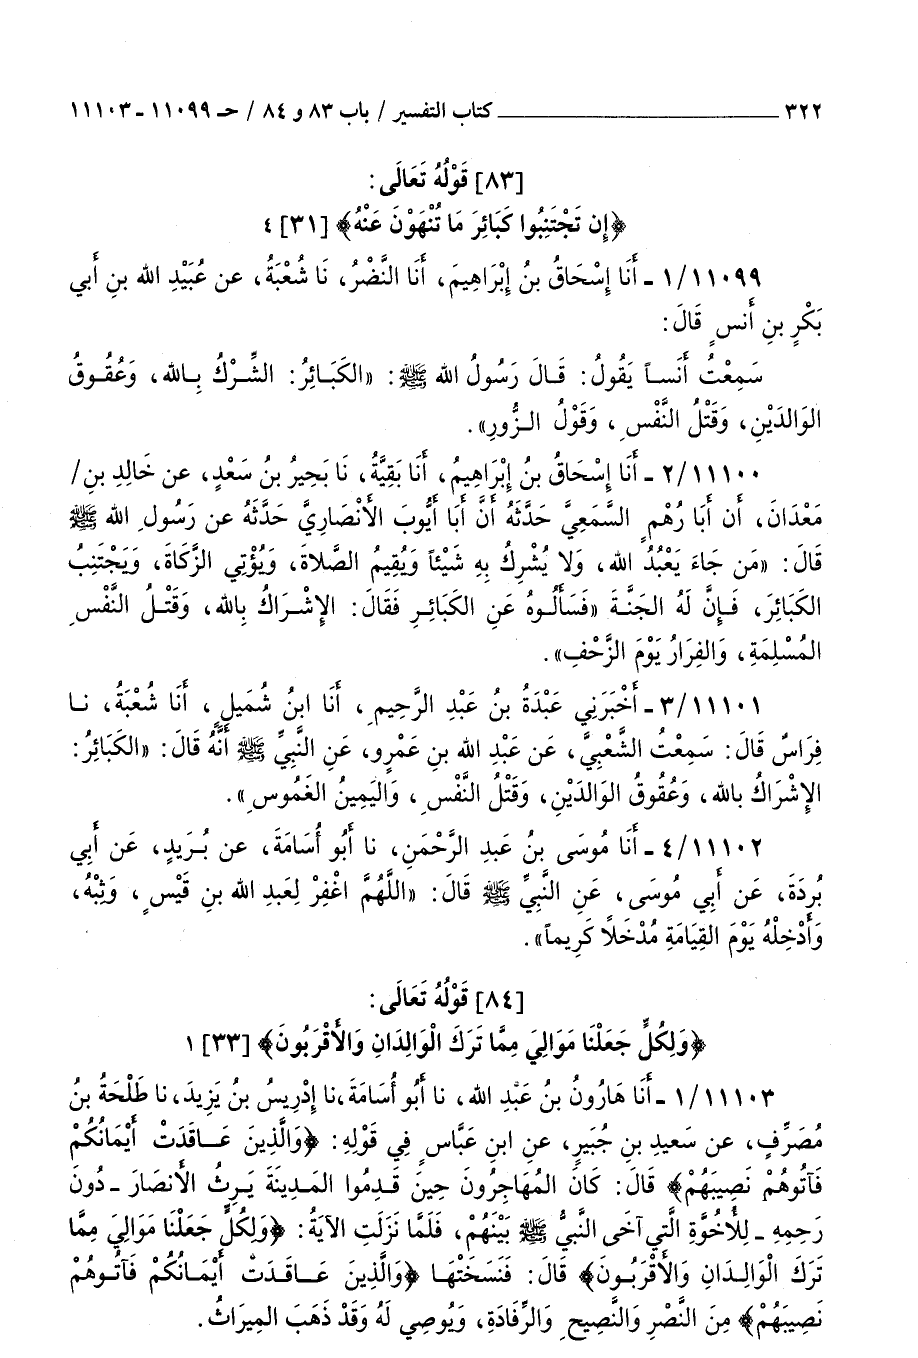 ٣٢٢ ـــــــــــــــــــــــــ كتاب التفسير / باب ٨٣ و ٨٤ / حـ ١١٠٩٩ - ١١١٠٣
[٨٣] قَوْلُهُ تَعَالَى:
﴿إِن تَجْتَنِبُوا كَبَائِرَ مَا تُنْهَوْنَ عَنْهُ﴾ [٣١] ٤
١/١١٠٩٩ - أَنَا إِسْحَاقُ بنُ إِبْرَاهِيمَ، أَنَا النَّضْرُ، نَا شُعْبَةُ، عن عُبَيْدِ الله بنِ أَبي
بَكْرٍ بنِ أَنسٍ قَالَ:
سَمِعْتُ أَنَساً يَقُولُ: قَالَ رَسُولُ الله ﷺ: «الكَبَائِرُ: الشِّرْكُ بِالله، وَعُقُوقُ
الوَالدَيْنِ، وَقَتْلُ النَّفْسِ، وَقَوْلُ الزُّورِ».
٢/١١١٠٠ - أَنَا إِسْحَاقُ بنُ إِبْرَاهِيمُ، أَنَا بَقِيَّةُ، نَا بَحِيرُ بنُ سَعْدٍ، عن خَالِدِ بنِ/
مَعْدَانَ، أن أَبَا رُهْمٍ السَّمَعِيَّ حَدَّثَهُ أَنَّ أَبَا أَيُّوبَ الأَنْصَارِيَّ حَدَّثَهُ عن رَسُولِ الله ﷺ
قَالَ: «مَن جَاءَ يَعْبُدُ الله، وَلا يُشْرِكُ بِهِ شَيْئاً وَيُقِيمُ الصَّلاةَ، وَيُؤْتِي الزَّكَاةَ، وَيَجْتَنِبُ
الكَبَائِرَ، فَإِنَّ لَهُ الجَنَّةَ «فَسَأَلُوهُ عَنِ الكَبَائِرِ فَقَالَ: الإِشْرَاكُ بِالله، وَقَتْلُ النَّفْسِ
المُسْلِمَةِ، وَالفِرَارُ يَوْمَ الزَّحْفِ».
٣/١١١٠١ - أَخْبَرَنِي عَبْدَةُ بنُ عَبْدِ الرَّحِيمِ، أَنَا ابنُ شُمَيلٍ، أَنَا شُعْبَةُ، نَا
فِرَاسٌ قَالَ: سَمِعْتُ الشَّعْبِيَّ، عَن عَبْدِ الله بنِ عَمْرٍو، عَنِ النَّبِيِّ ﷺ أَنَّهُ قَالَ: «الكَبَائِرُ:
الإِشْرَاكُ بالله، وَعُقُوقُ الوَالدَيْنِ، وَقَتْلُ النَّفْسِ، وَاليَمِينُ الغَمُوسِ».
٤/١١١٠٢ - أَنَا مُوسَى بنُ عَبدِ الرَّحْمَنِ، نا أَبُو أُسَامَةَ، عن بُرَيدٍ، عَن أَبي
بُردَةَ، عَن أَبِي مُوسَى، عَنِ النَّبِيِّ ﷺ قَالَ: «اللَّهُمَّ اغْفِرْ لِعَبدِ الله بنِ قَيْسٍ، وَثِبْهُ،
وَأَدْخِلْهُ يَوْمَ القِيَامَةِ مُدْخَلاً كَرِيماً».
[٨٤] قَوْلُهُ تَعَالَى:
﴿وَلِكُلٍّ جَعَلْنَا مَوَالِيَ مِمَّا تَرَكَ الْوَالِدَانِ وَالأَقْرَبُونَ﴾ [٣٣] ١
١/١١١٠٣ - أَنَا هَارُونُ بنُ عَبْدِ الله، نا أَبُو أُسَامَةَ، نا إِدْرِيسُ بنُ يَزِيدَ، نا طَلْحَةُ بنُ
مُصَرِّفٍ، عن سَعِيدِ بنِ جُبَيرٍ، عنِ ابنِ عَبَّاسٍ فِي قَوْلِهِ: ﴿وَالَّذِينَ عَاقَدَتْ أَيْمَانُكُمْ
فَآتُوهُمْ نَصِيبَهُمْ﴾ قَالَ: كَانَ المُهَاجِرُونَ حِينَ قَدِمُوا المَدِينَةَ يَرِثُ الأَنصَارَ - دُونَ
رَحِمِهِ - لِلأُخُوَّةِ الَّتِي آخَى النَّبِيُّ ﷺ بَيْنَهُمْ، فَلَمَّا نَزَلَتِ الآيَةُ: ﴿وَلِكُلٍّ جَعَلْنَا مَوَالِيَ مِمَّا
تَرَكَ الْوَالِدَانِ وَالأَقْرَبُونَ﴾ قَالَ: فَنَسَخَتْهَا ﴿وَالَّذِينَ عَاقَدَتْ أَيْمَانُكُمْ فَآتُوهُمْ
نَصِيبَهُمْ﴾ مِنَ النَّصْرِ وَالنَّصِيحِ وَالرِّفَادَةِ، وَيُوصِي لَهُ وَقَدْ ذَهَبَ المِيرَاثُ.